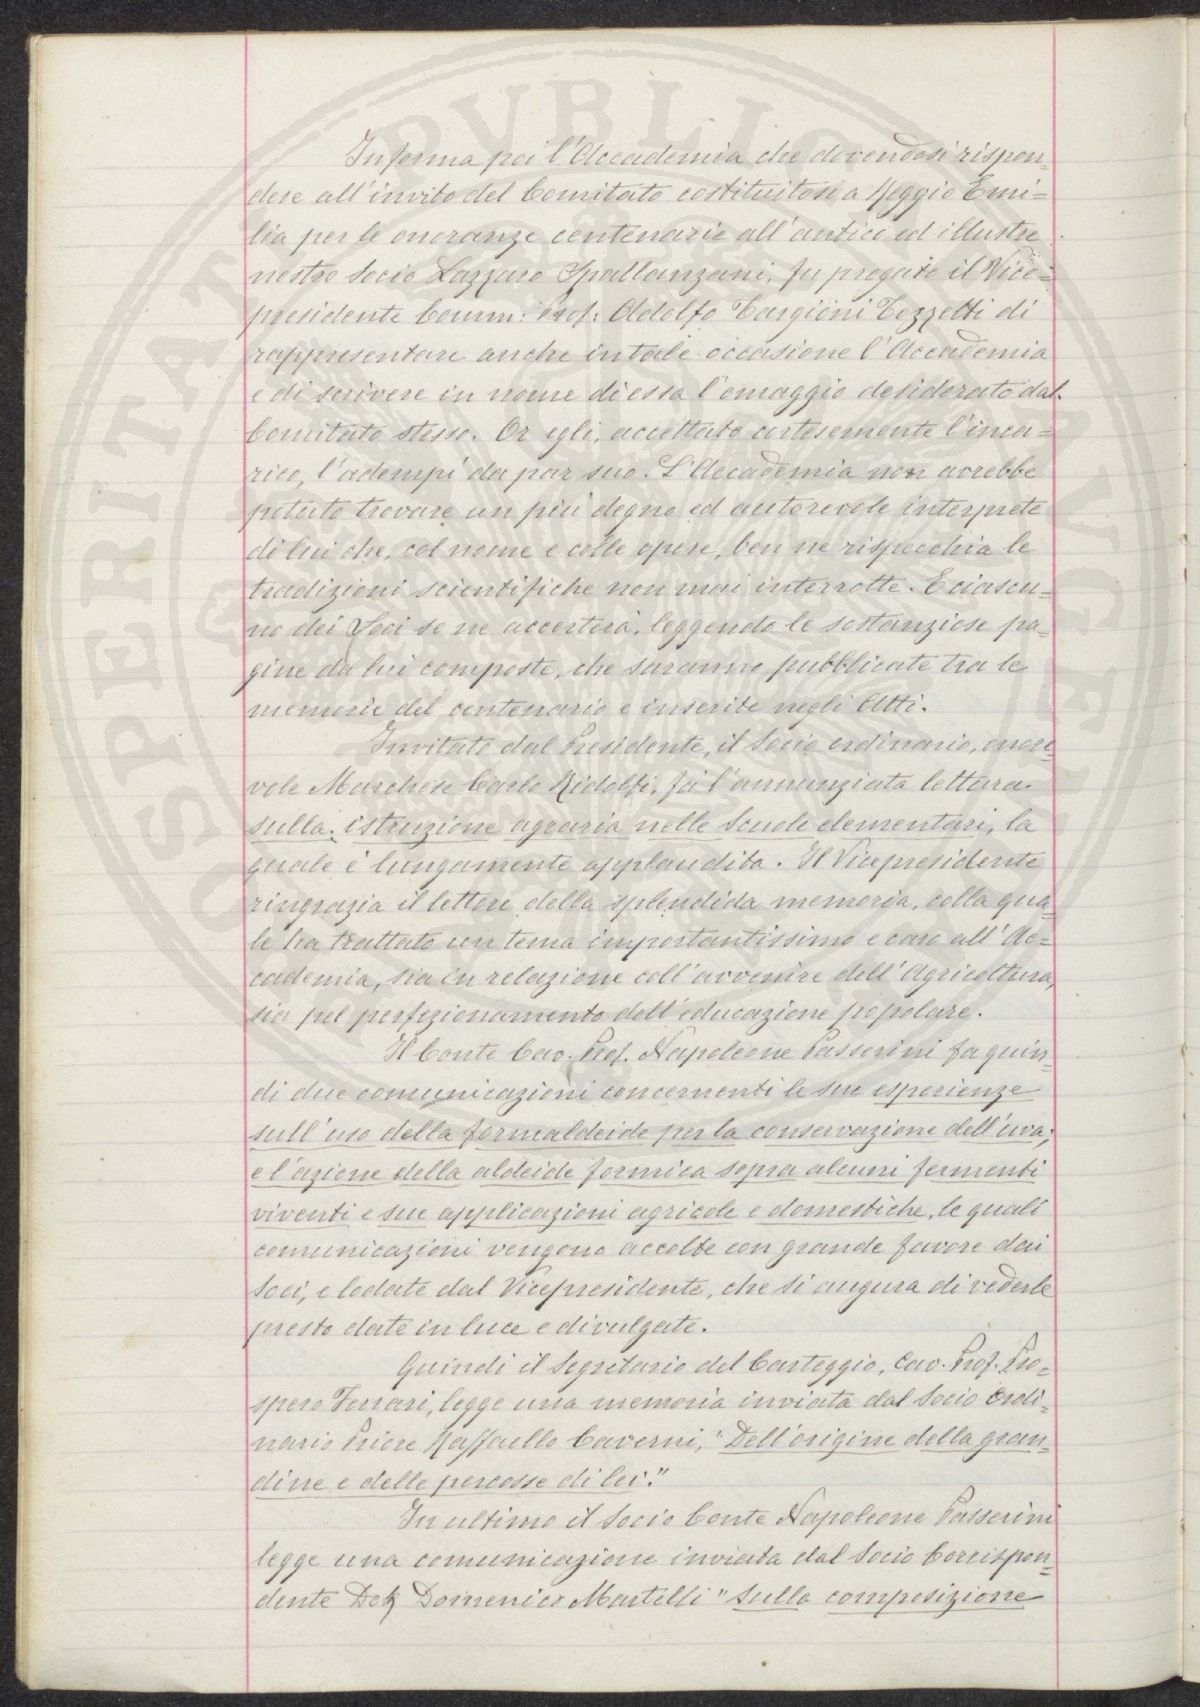 Informa poi l'Accademia che dovendosi rispon-
dere all'invito del Comitato costituitosi a Reggio Emi=
lia per le onoranze centenarie all'antico ed illustre
nostro Socio Lazzaro Spallanzani, fu pregato il Vice=
presidente Comm: Prof. Adolfo Targioni Tozzetti di
rappresentare anche in tale occasione l'Accademia
e di scrivere in nome di essa l'omaggio desiderato dal
Comitato stesso. Or egli, accettato cortesemente l'inca=
rico, l'adempì da par suo. L'Accademia non avrebbe
potuto trovare un più degno ed autorevole interprete
di lui che, col nome e colle opere, ben ne rispecchia le
tradizioni scientifiche non mai interrotte. E ciascu=
no dei Soci se ne accerterà, leggendo le sostanziose pa=
gine da lui composte, che saranno pubblicate tra le
memorie del centenario e inserite negli Atti.
Invitato dal Presidente, il Socio ordinario, onore=
vole Marchese Carlo Ridolfi, fa l'annunziata lettura
sulla istruzione agraria nelle Scuole elementari, la
quale è lungamente applaudita. Il Vicepresidente
ringrazia il lettore della splendida memoria, colla qua=
le ha trattato un tema importantissimo e caro all'Ac=
cademia, sia in relazione coll'avvenire dell'Agricoltura,
sia pel perfezionamento dell'educazione popolare.
Il Conte Cav. Prof. Napoleone Passerini fa quin=
di due comunicazioni concernenti le sue esperienze
sull'uso della formaldeide per la conservazione dell'uva;
e l'azione della aldeide formica sopra alcuni fermenti
viventi e sue applicazioni agricole e domestiche, le quali
comunicazioni vengono accolte con grande favore dai
Soci, e lodate dal Vicepresidente, che si augura di vederle
presto date in luce e divulgate.
Quindi il Segretario del Carteggio, Cav. Prof. Pro=
spero Ferrari, legge una memoria inviata dal Socio ordi=
nario Priore Raffaello Caverni, "Dell'origine della gran=
dine e delle percosse di lei."
In ultimo il Socio Conte Napoleone Passerini
legge una comunicazione inviata dal Socio Corrispon=
dente Dott. Domenico Martelli "Sulla composizione
PROSPERITATI PVBLICAE AVGENDAE